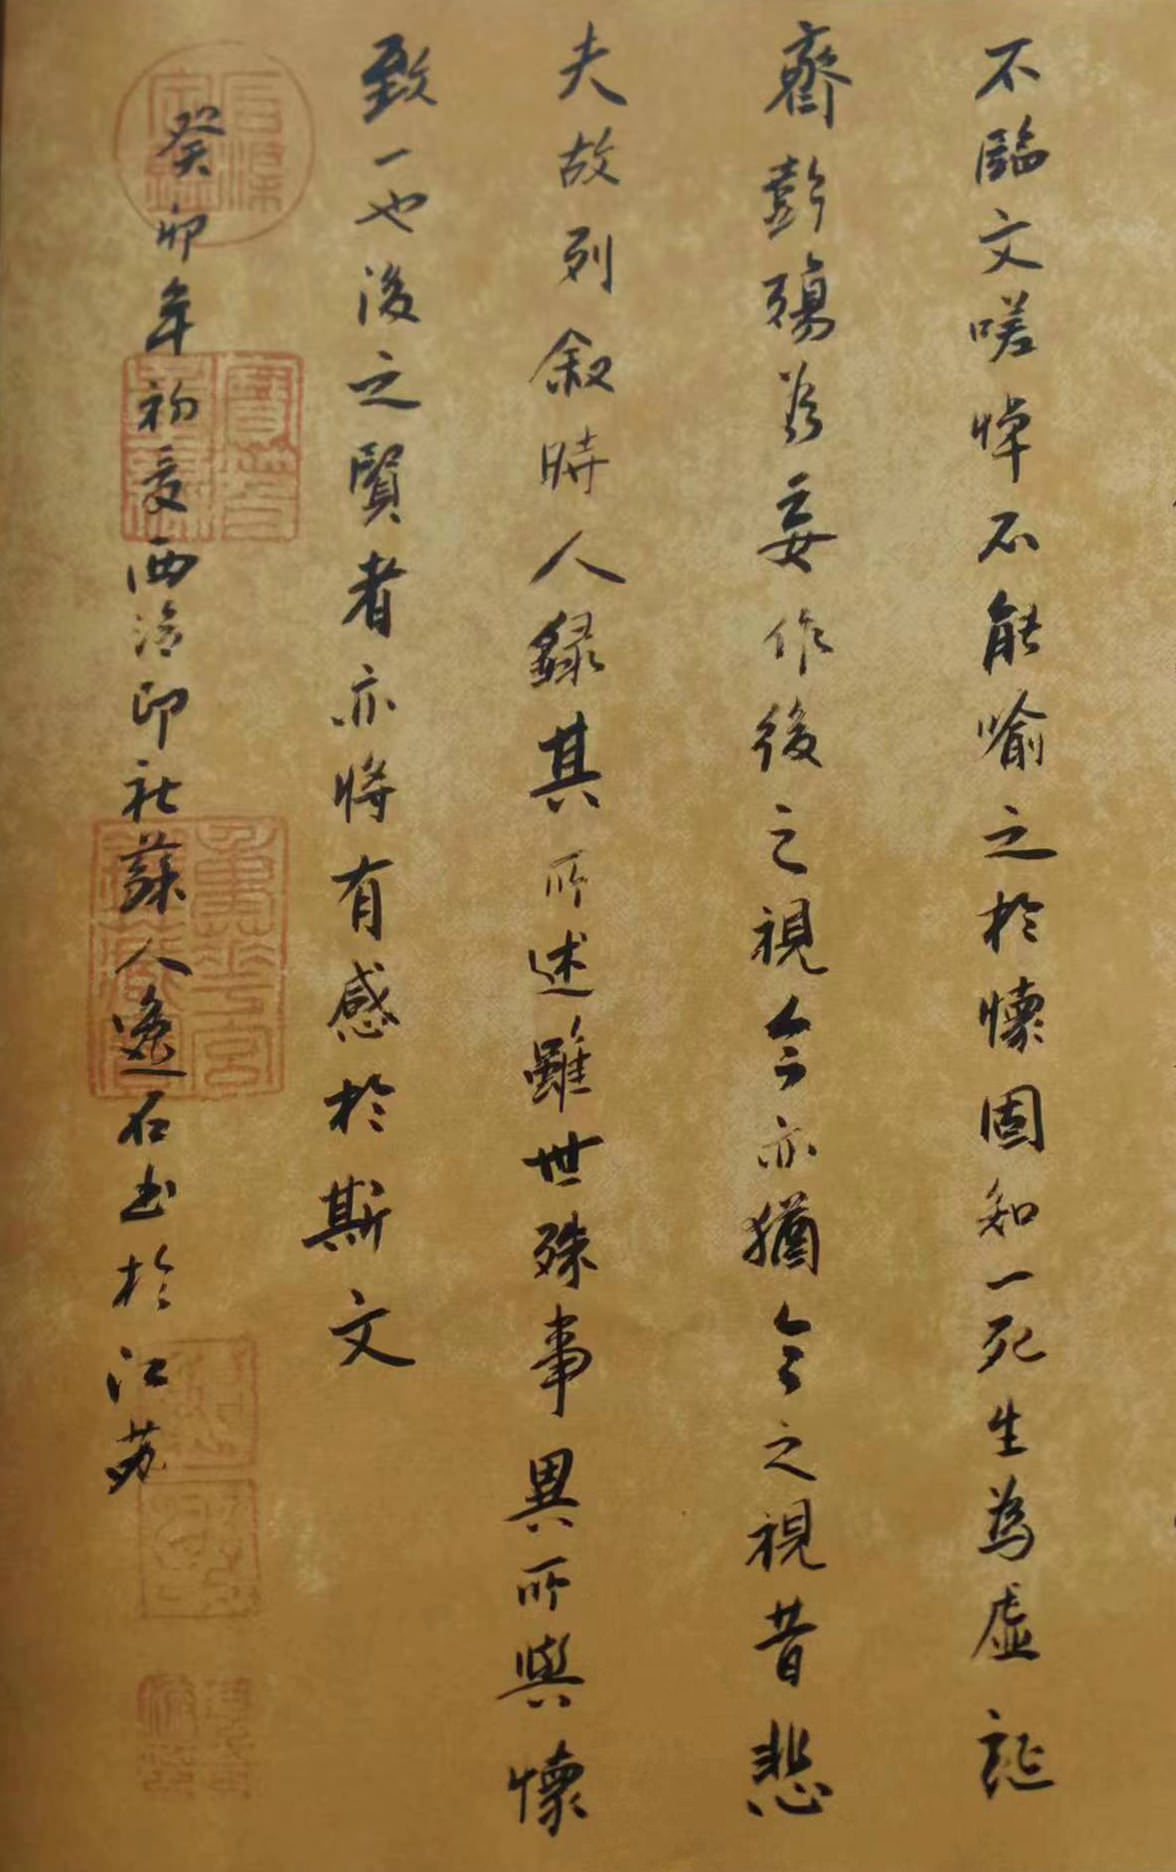 不臨文嗟悼不能喻之於懷固知一死生為虛誕
齊彭殤為妄作後之視今亦猶今之視昔悲
夫故列叙時人録其所述雖世殊事異所興懷
致一也後之賢者亦將有感於斯文
癸卯年初夏西泠印社蘇人逸石书於江苏
石渠定鑑
寶笈重編
重華宮鑑藏寶